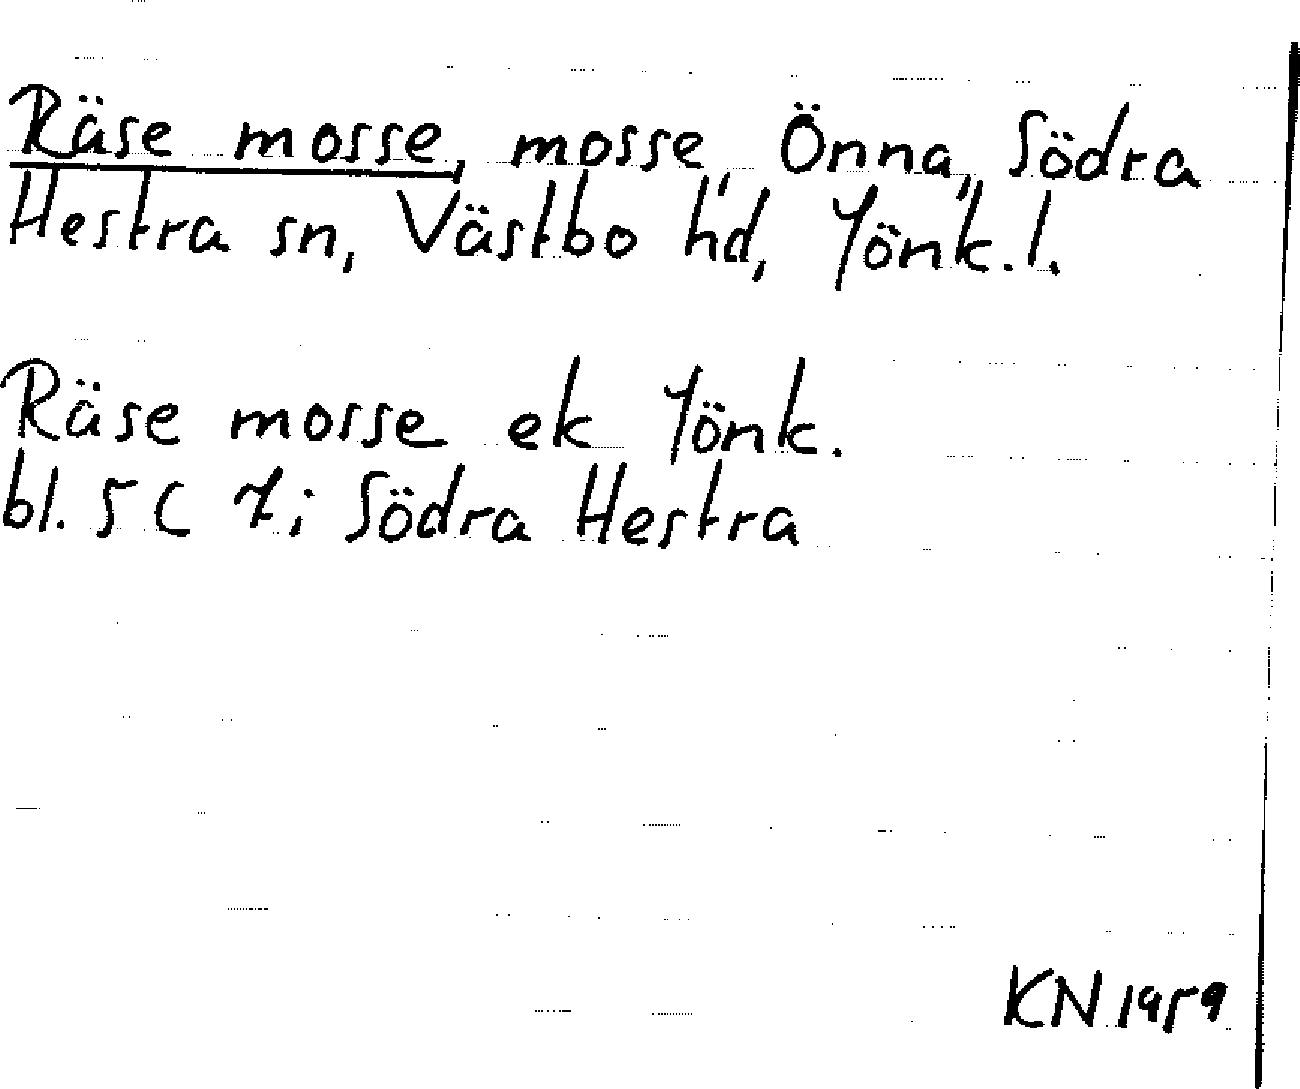 Räse mosse, mosse, Önna, Södra
Hestra sn, Västbo hd, Jönk. l.
Räse mosse ek Jönk.
bl. 5 C 7; Södra Hestra
KN 1959